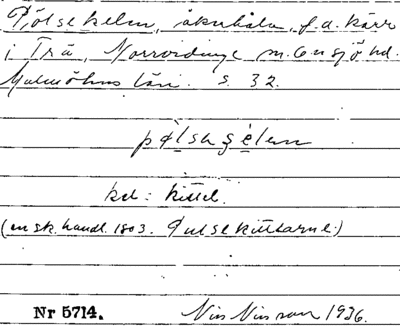 Pölsekelen, åkerhåla, f.d. kärr
i Trä, Norrvidinge sn. Onsjö hd.
Malmöhus län. S. 32.
pølsaşèlen
kel: kittel.
(en sk. handl. 1803. Pulsekittlarne.)
Nr 5714.
Nils Nilsson 1936.